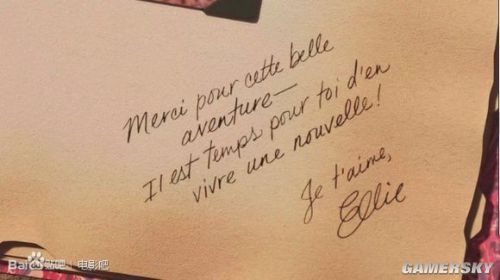 Merci pour cette belle
aventure—
Il est temps pour toi d'en
vivre une nouvelle!
Je t'aime,
Ellie
Bai贴吧 | 电影吧
GAMERSKY